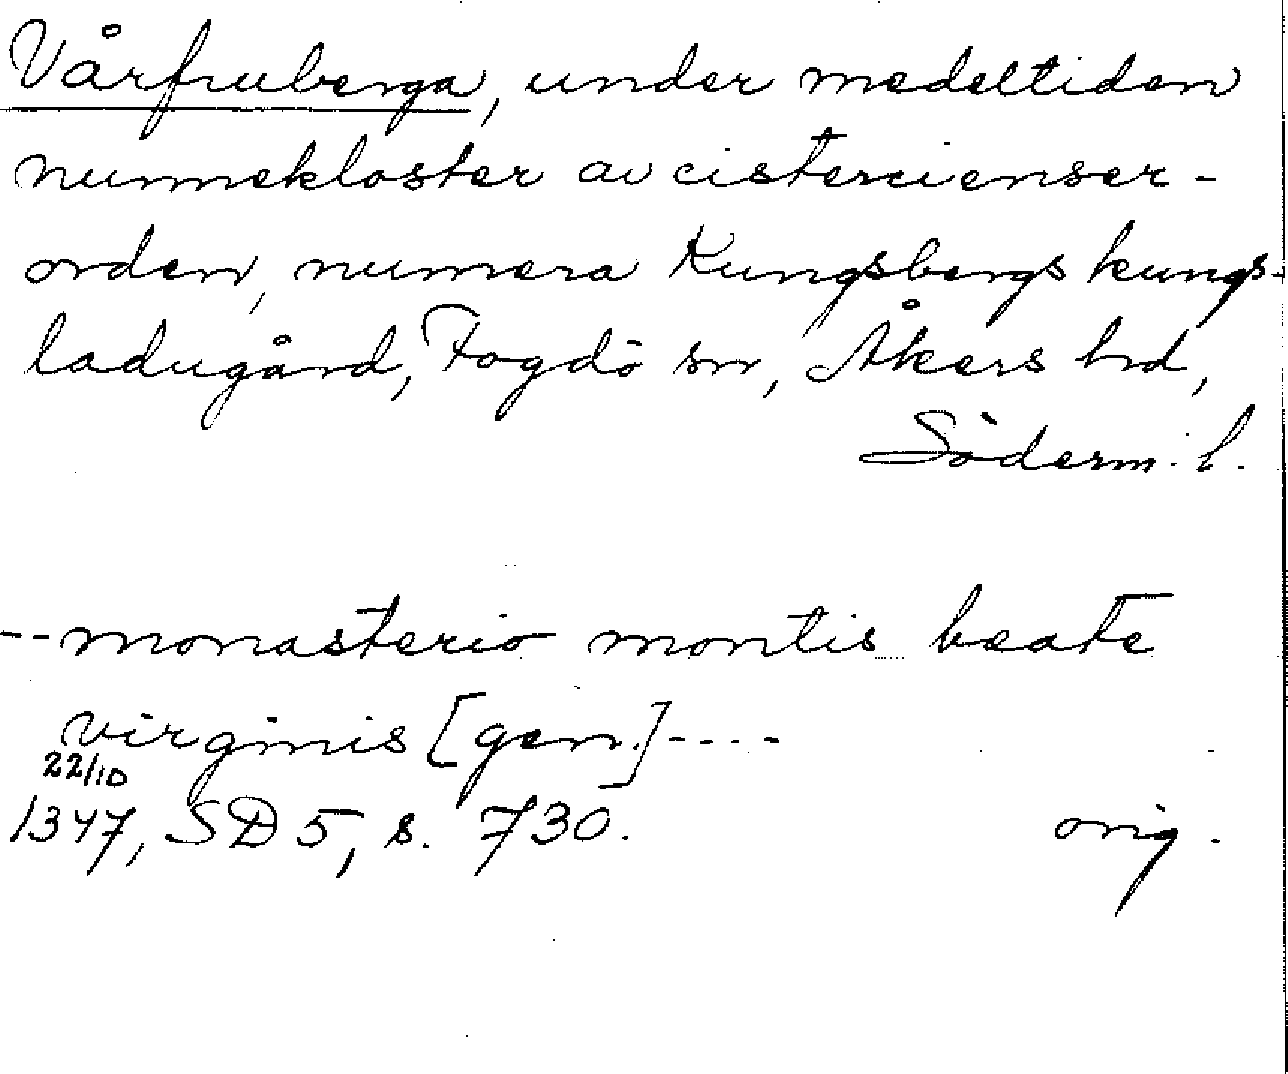 Vårfruberga, under medeltiden
nunnekloster av cistercienser-
orden, numera Kungsbergs kungs-
ladugård, Fogdö sn, Åkers hd,
Söderm. l.
-- monasterio montis beate
virginis [gen.] ----
22/10
1347, SD 5, s. 730. orig.